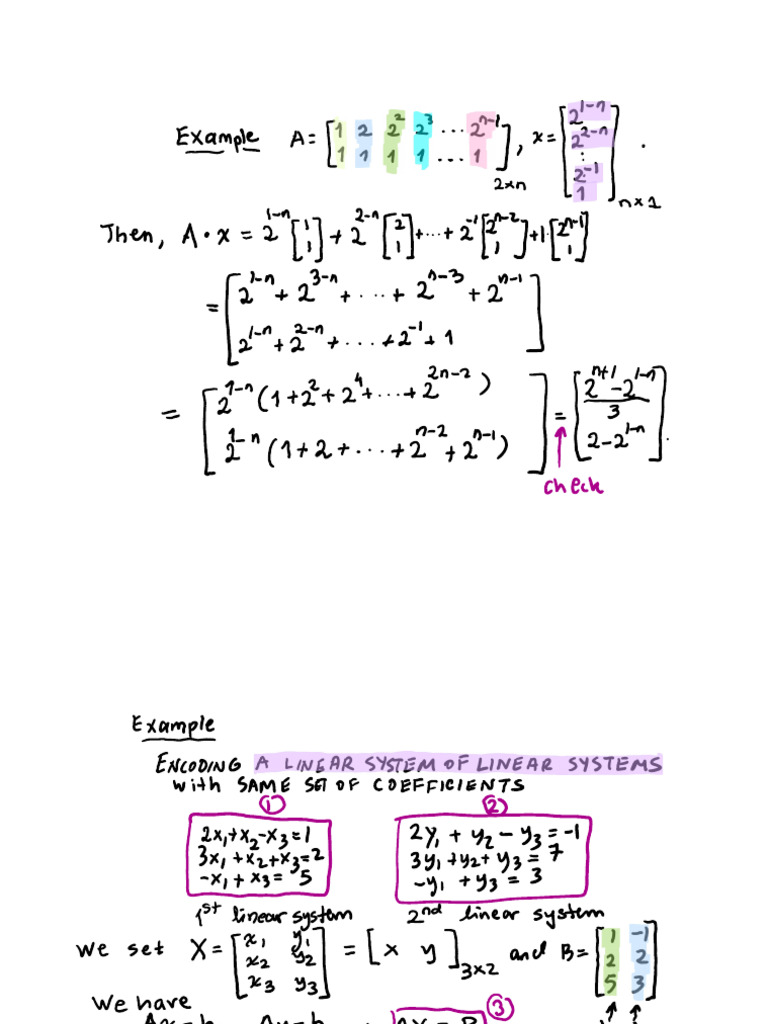 Example A = [1 2 2² 2³ ... 2^{n-1}; 1 1 1 1 ... 1]_{2×n}, x = [2^{1-n}; 2^{2-n}; ⋮; 2^{-1}; 1]_{n×1}.
Then, A·x = 2^{1-n}[1; 1] + 2^{2-n}[2; 1] + ... + 2^{-1}[2^{n-2}; 1] + 1·[2^{n-1}; 1]
= [2^{1-n} + 2^{3-n} + ... + 2^{n-3} + 2^{n-1}; 2^{1-n} + 2^{2-n} + ... + 2^{-1} + 1]
= [2^{1-n}(1 + 2² + 2⁴ + ... + 2^{2n-2}); 2^{1-n}(1 + 2 + ... + 2^{n-2} + 2^{n-1})] = [(2^{n+1} - 2^{1-n})/3; 2 - 2^{1-n}].
check
Example
ENCODING A LINEAR SYSTEM OF LINEAR SYSTEMS
with SAME SET OF COEFFICIENTS
① ②
2x₁+x₂-x₃=1
3x₁+x₂+x₃=2
-x₁+x₃=5
2y₁+y₂-y₃=-1
3y₁+y₂+y₃=7
-y₁+y₃=3
1st linear system 2nd linear system
We set X = [x₁ y₁; x₂ y₂; x₃ y₃] = [x y]_{3×2} and B = [1 -1; 2 2; 5 3]
We have ③